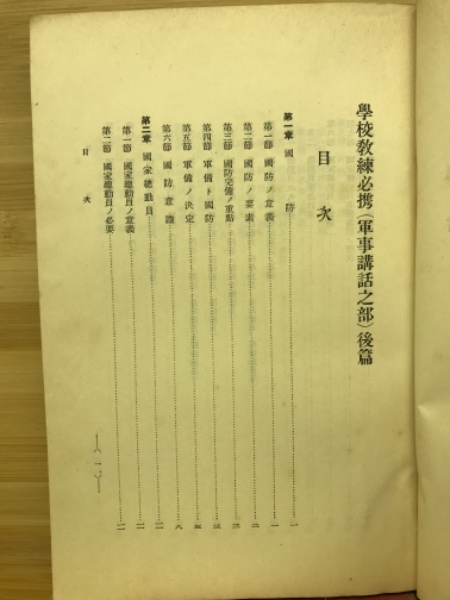 學校教練必携(軍事講話之部)後篇
目次
第一章 國防……一
第一節 國防ノ意義……一
第二節 國防ノ要素……二
第三節 國防完備ノ重點……三
第四節 軍備ト國防……三
第五節 軍備ノ決定……五
第六節 國防意識……八
第二章 國家總動員……一一
第一節 國家總動員ノ意義……一一
第二節 國家總動員ノ必要……一一
目次
(一)